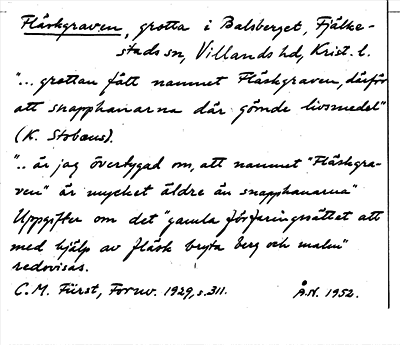 Fläskgraven, grotta i Balsberget, Fjälke-
stads sn, Villands hd, Krist. l.
"... grottan fått namnet Fläskgraven, därför
att snapphanarna där gömde livsmedel"
(K. Stobæus).
".. är jag övertygad om, att namnet "Fläskgra-
ven" är mycket äldre än snapphanarna"
Uppgifter om det "gamla förfaringssättet att
med hjälp av fläsk bryta berg och malm"
redovisas.
C. M. Fürst, Fornv. 1929, s. 311. Å.N. 1952.